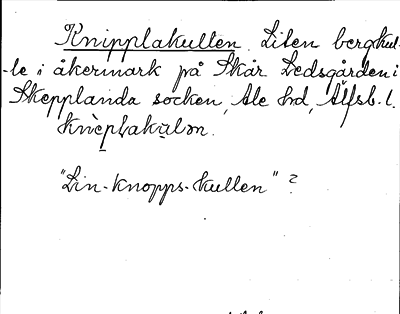 Knipplakullen. Liten bergkul-
-le i åkermark på Skår Ledsgården i
Skepplanda socken, Ale hd, Älfsb. l.
"Lin-knopps-kullen" ?